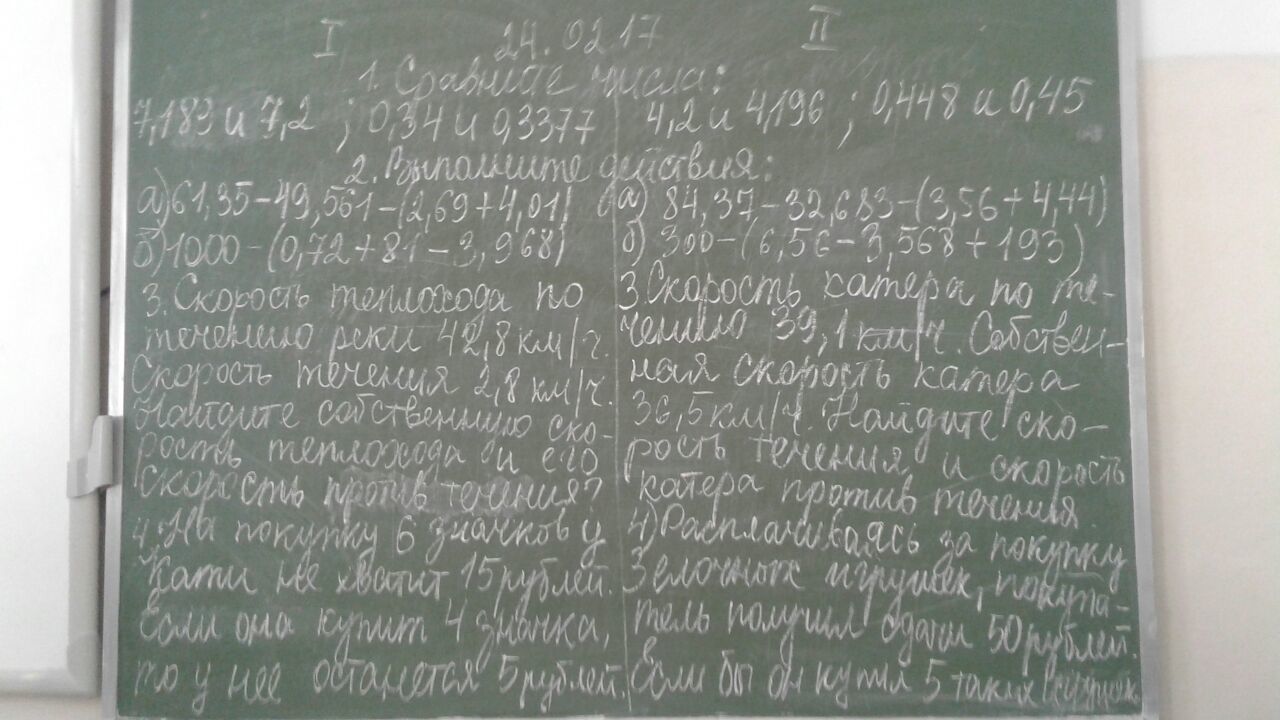 I 24.02.17 II
1. Сравните числа:
7,183 и 7,2 ; 0,34 и 0,3377
4,2 и 4,196 ; 0,448 и 0,45
2. Выполните действия:
а) 61,35-49,561-(2,69+4,01)
б) 1000-(0,72+81-3,968)
3. Скорость теплохода по
течению реки 42,8 км/ч.
Скорость течения 2,8 км/ч.
Найдите собственную ско-
рость теплохода и его
скорость против течения?
4. На покупку 6 значков у
Кати не хватит 15 рублей.
Если она купит 4 значка,
то у нее останется 5 рублей.
а) 84,37-32,683-(3,56+4,44)
б) 300-(6,56-3,568+193)
3. Скорость катера по те-
чению 39,1 км/ч. Собствен-
ная скорость катера
36,5 км/ч. Найдите ско-
рость течения и скорость
катера против течения.
4) Расплачиваясь за покупку
3 елочных игрушек, покупа-
тель получил сдачи 50 рублей.
Если бы он купил 5 таких